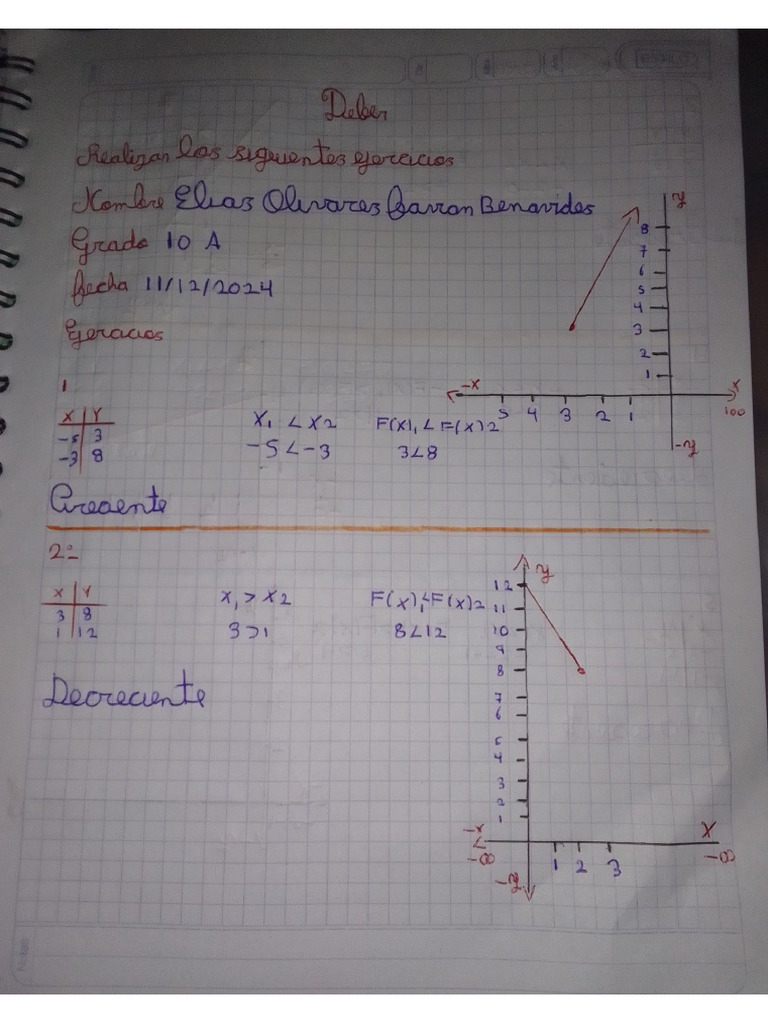 Deber
Realizar los siguientes ejercicios
Nombre Elias Olivares Barron Benavides
Grado 10 A
fecha 11/12/2024
Ejercicios
1
X Y
-5 3
-3 8
X1 < X2
-5 < -3
F(X)1 < F(X)2
3<8
Creciente
y
8
7
6
5
4
3
2
1
-x
x
5 4 3 2 1
100
-y
2=
X Y
3 8
1 12
X1 > X2
3>1
F(X)1 < F(X)2
8<12
Decreciente
y
12
11
10
9
8
7
6
5
4
3
2
1
-x
X
-∞
-∞
1 2 3
-y